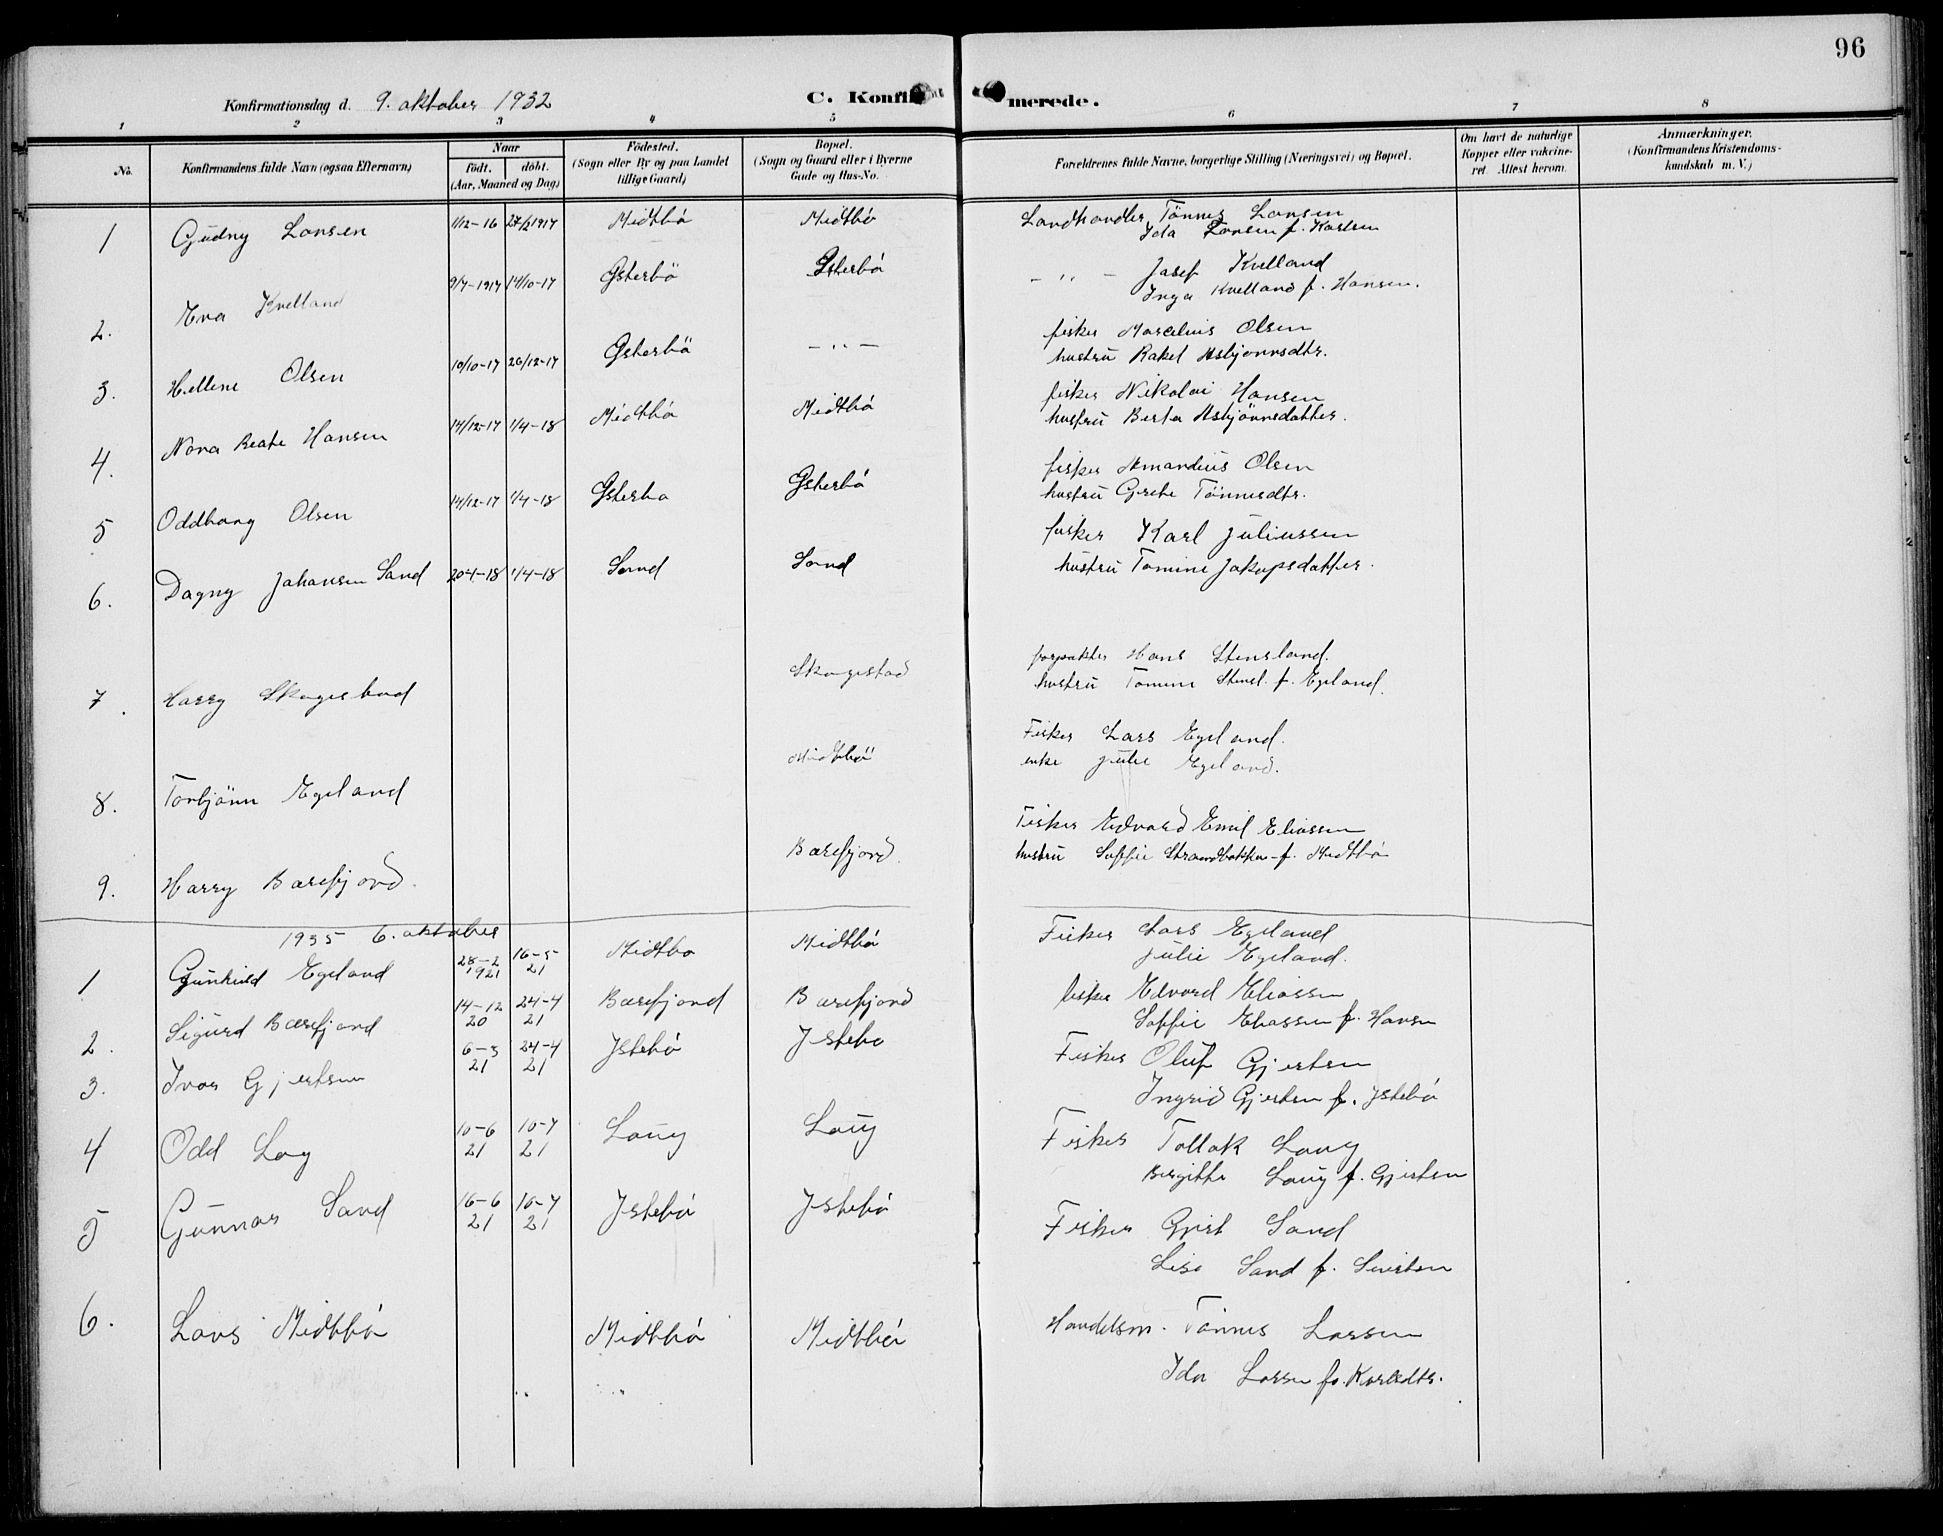 96
Konfirmationsdag d. 9. oktober 1932
C. Konfir merede.
1 2 3 4 5 6 7 8
No.
Konfirmandens fulde Navn (ogsaa Efternavn)
Naar
födt. döbt.
(Aar, Maaned og Dag)
Födested.
(Sogn eller By og paa Landet
tillige Gaard)
Bopæl.
(Sogn og Gaard eller i Byerne
Gade og Hus-No.
Forældrenes fulde Navne, borgerlige Stilling (Næringsvei) og Bopæl.
Om havt de naturlige
Kopper eller vakcine-
ret. Attest herom.
Anmærkninger.
(Konfirmandens Kristendoms-
kundskab m. V.)
1 Gudny Larsen 1/12-16 27/2 1917 Midtbö Midtbö Landhandler Tönnes Larsen
Ida Larsen f. Karlsen
2. Eva Kvelland 9/7-1917 14/10-17 Ysterbö Ysterbö - " - Josef Kvelland
Inga Kvelland f. Hansen.
3. Hellene Olsen 10/10-17 26/12-17 Ysterbö - " - fisker Marselius Olsen
hustru Rakel Asbjönnsdtr.
4. Nora Beate Hansen 14/12-17 1/4-18 Midtbö Midtbö fisker Nikolai Hansen
hustru Berta Asbjönnsdatter.
5 Oddborg Olsen 14/12-17 1/4-18 Ysterbö Ysterbö fisker Amandus Olsen
hustru Grete Tönnesdtr.
6. Dagny Johansen Sand 20-1-18 1/4-18 Sand Sand fisker Karl Juliussen
hustru Tomine Jakopsdatter.
7. Harry Skogestad Skogestad forpakter Hans Stensland.
hustru Tomine Stensl. f. Egeland.
8. Torbjönn Egeland Midtbö Fisker Lars Egeland.
enke Julie Egeland.
9. Harry Barefjord. Barefjord. Fisker Edvard Emil Eliassen
hustru Soffie Strandbakken f. Midtbö
1935 6. oktober
1 Gunhild Egeland 28-2 1921 16-5 21 Midtbö Midtbö Fisker Lars Egeland
Julie Egeland.
2. Sigurd Barefjord 14-12 20 24-4 21 Barefjord Barefjord fisker Edvard Eliassen
Soffie Eliassen f. Hansen
3. Ivar Gjertsen 6-3 21 24-4 21 Istebö Istebö Fisker Oluf Gjertsen
Ingrid Gjertsen f. Istebö
4 Odd Log 10-6 21 10-7 21 Loug Loug Fisker Tollak Loug
Bergitte Loug f. Gjertsen
5 Gunnar Sand 16-6 21 10-7 21 Istebö Istebö Fisker Gjert Sand
Lise Sand f. Sivertsen
6. Lars Midtbö Midtbö Midtbö Handelsm. Tönnes Larsen
Ida Larsen fö. Karlsdtr.